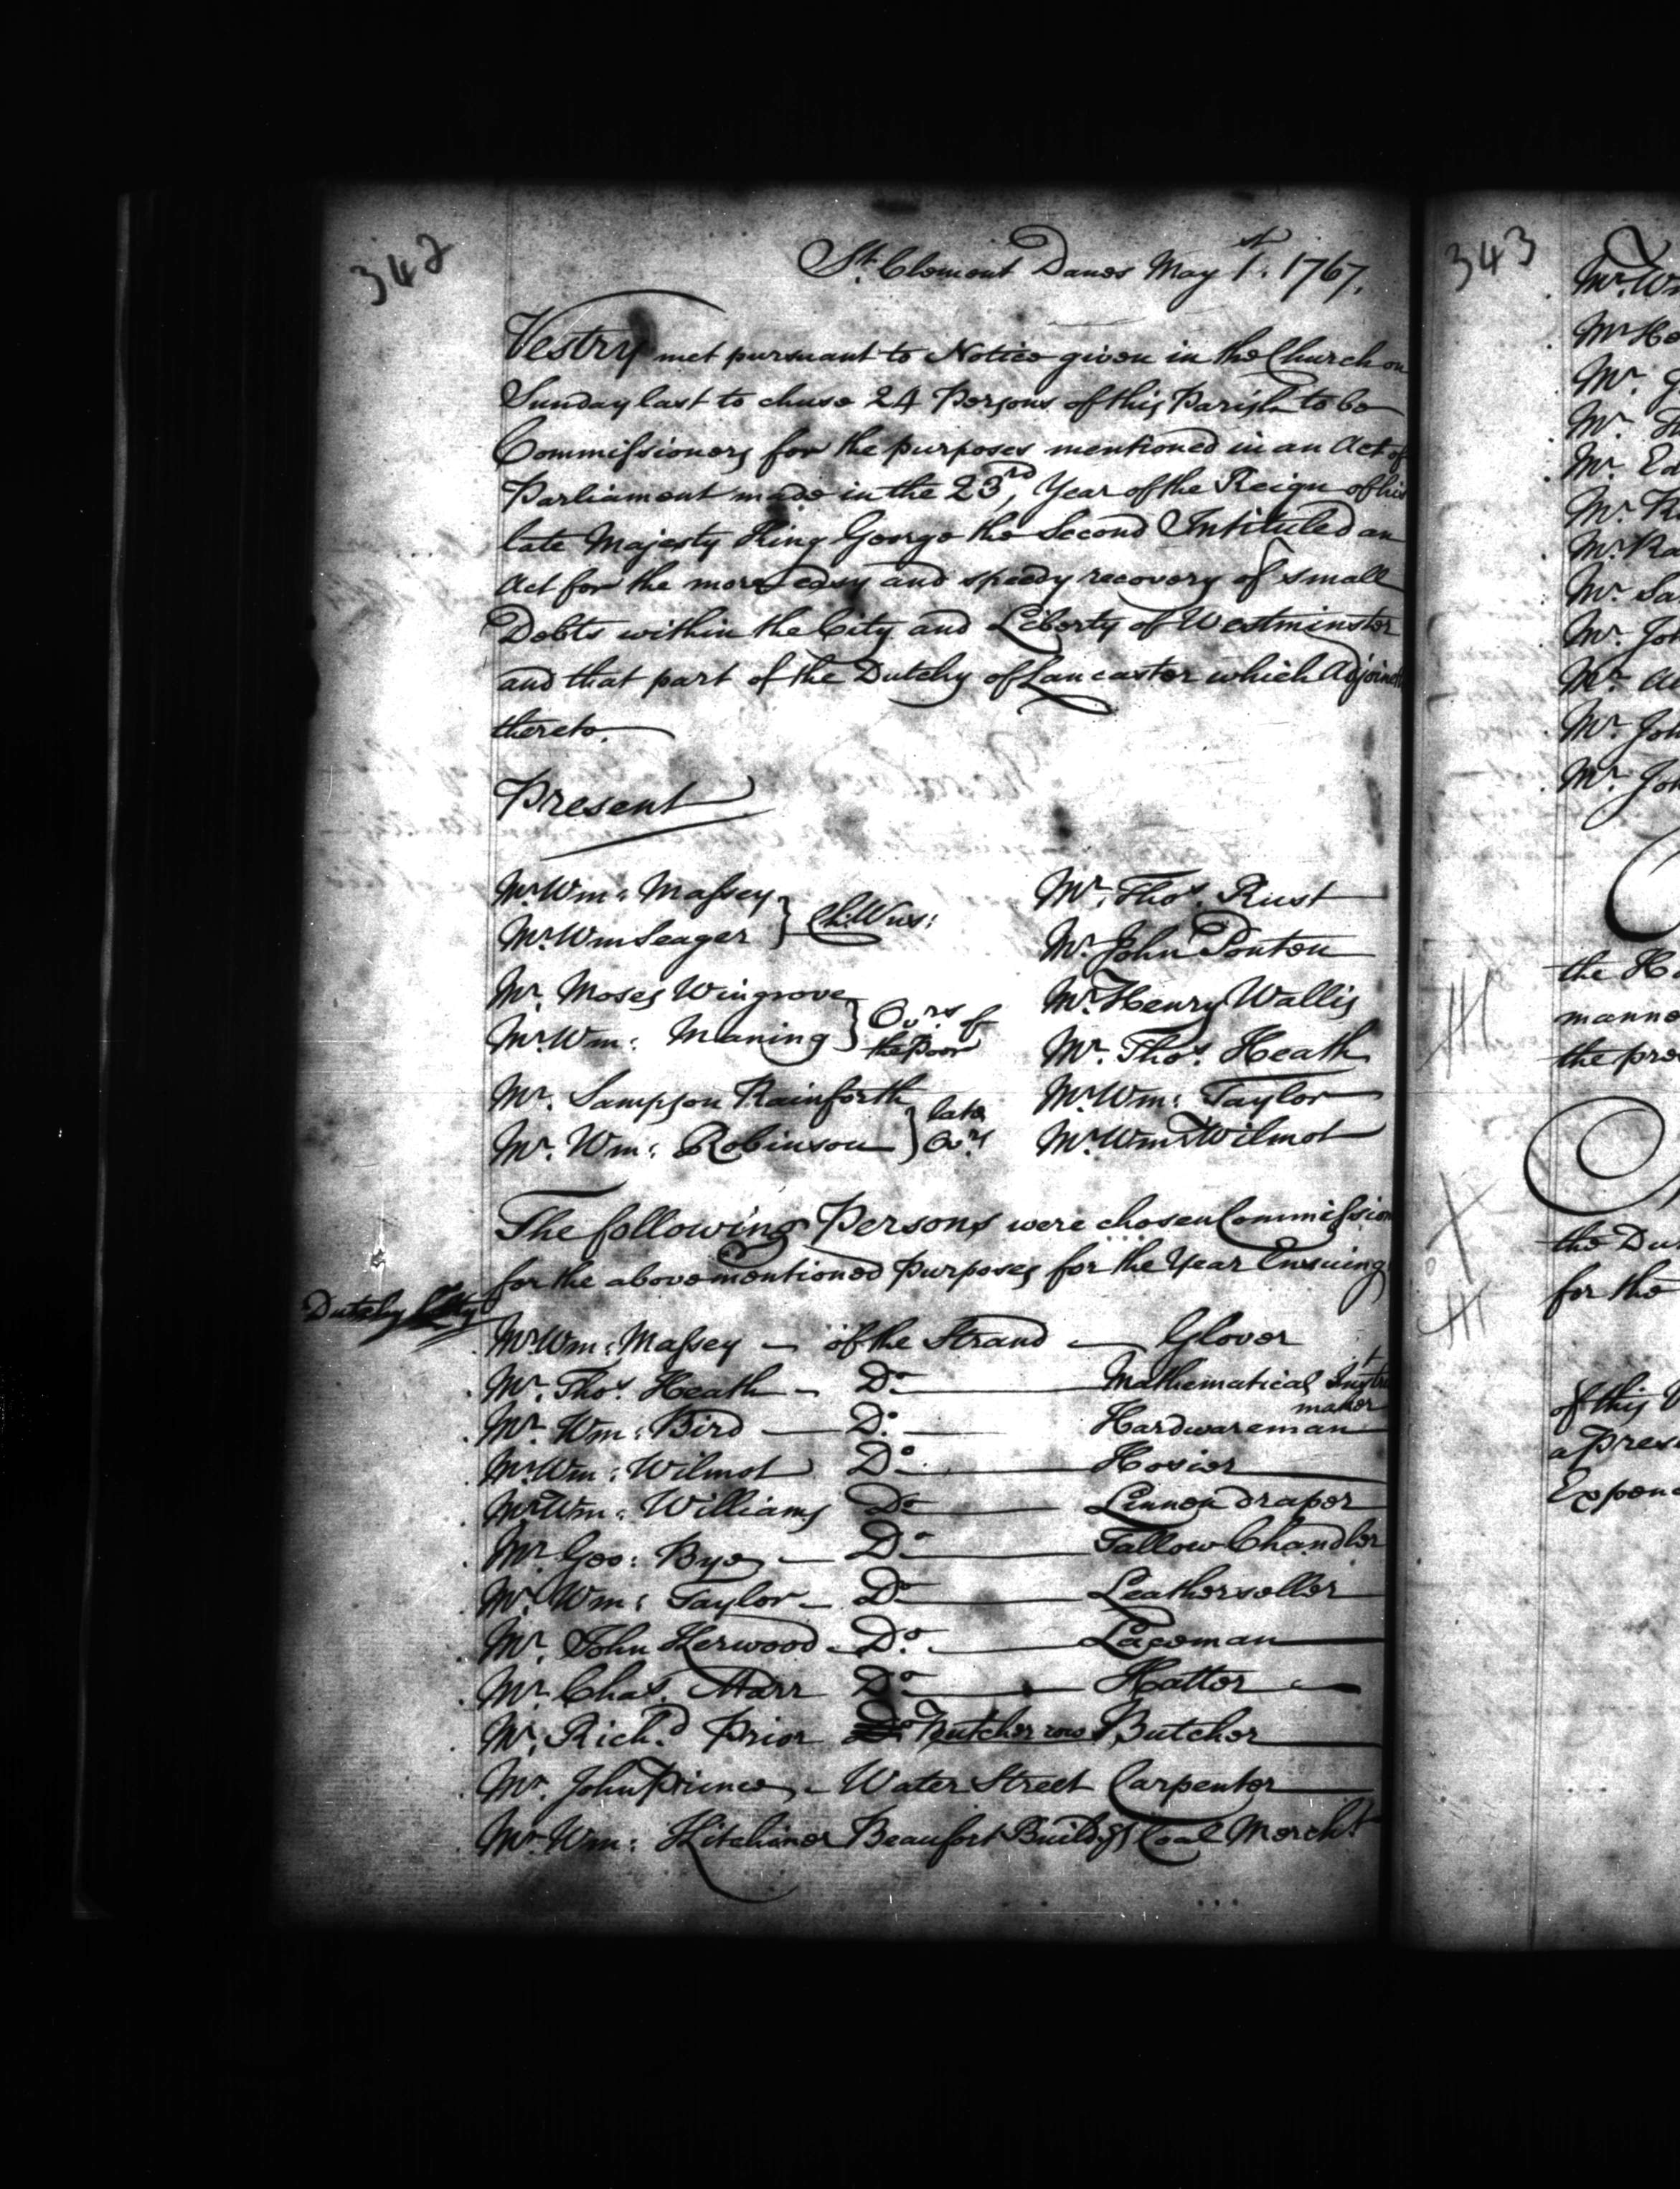 342
St. Clement Danes May 1st. 1767.
Vestry met pursuant to Notice given in the Church on
Sunday last to chuse 24 Persons of this Parish to be
Commissioners for the purposes mentioned in an Act of
Parliament made in the 23rd, Year of the Reign of his
late Majesty King George the Second Intituled an
Act for the more easy and speedy recovery of small
Debts within the City and Liberty of Westminster
and that part of the Dutchy of Lancaster which Adjoineth
thereto.
Present
Mr. Wm: Massey } Ch: Wns: Mr. Thos. Rust
Mr. Wm Seager Mr. John Ponton
Mr. Moses Wingrove } Ovrs of the Poor Mr. Henry Wallis
Mr. Wm: Maning Mr. Thos. Heath
Mr. Sampson Rainforth } late Ovrs Mr. Wm: Taylor
Mr. Wm: Robinson Mr. Wm: Wilmot
The following Persons were chosen Commission
for the abovementioned Purposes for the Year Ensuing
Dutchy
Mr. Wm: Massey — of the Strand — Glover
Mr. Thos. Heath — Do. — Mathematical Instru
maker
Mr. Wm: Bird — Do. — Hardwareman
Mr. Wm: Wilmot Do. — Hosier
Mr. Wm: Williams Do — Linnen draper
Mr. Geo: Bye — Do. — Tallow Chandler
Mr. Wm: Taylor — Do. — Leatherseller
Mr. John Kerwood — Do. — Laceman
Mr. Chas. Marr Do. — Hatter —
Mr. Richd. Prior Do Butcher row Butcher
Mr. John Prince — Water Street Carpenter
Mr. Wm: Kitchiner Beaufort Buildgs Coal Mercht
343
Mr. Wm
Mr He
Mr. J
Mr.
Mr. Ed
Mr. R
Mr. Ra
Mr. Sa
Mr. Joh
Mr. A
Mr. Joh
Mr. Joh
the H
manne
the pre
the Du
for the
of this V
a Pres
Expenc